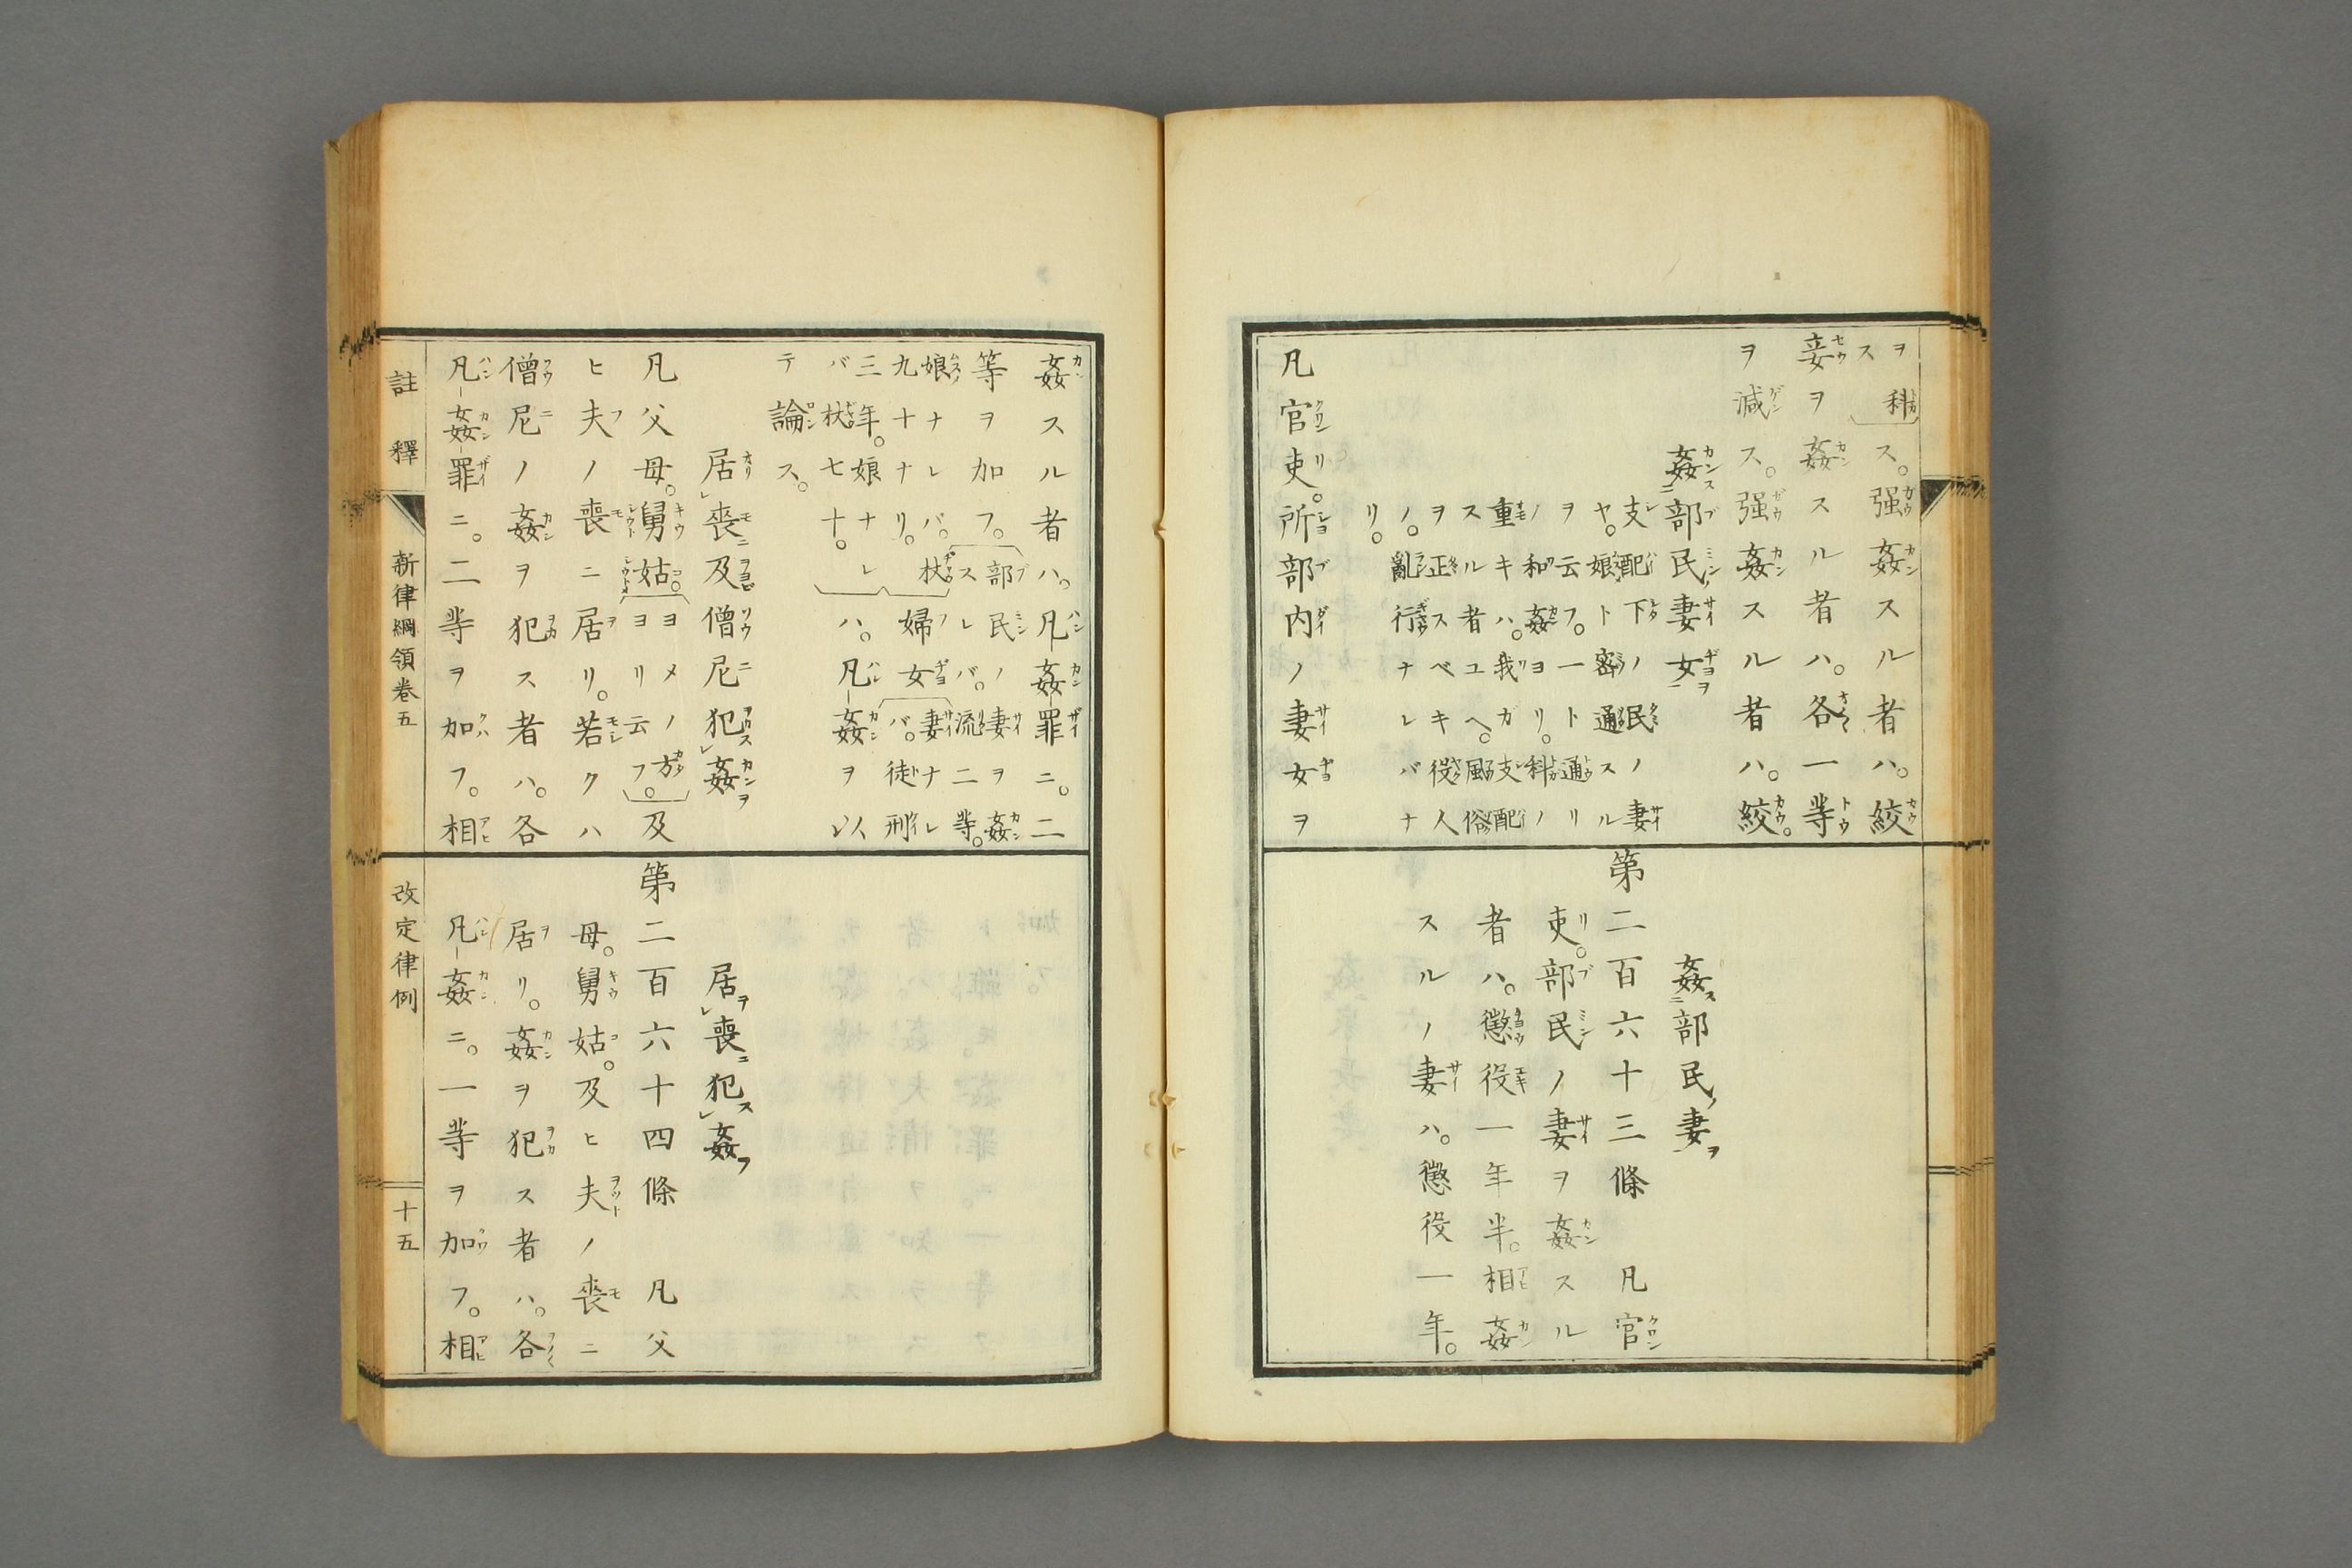 ヲ科
ス
ス。强姦スル者ハ。絞
妾ヲ姦スル者ハ。各一等
ヲ減ス。强姦スル者ハ。絞。
姦部民妻女
支配下ノ民ノ妻
ヤ。娘ト密通スル
ヲ云フ。一ト通リ
ノ和姦ヨリ。科ノ
重キハ。我ガ支配
スル者ユヘ。風俗
ヲ正スベキ役人
ノ。亂行ナレバナ
リ。
凡官吏。所部内ノ妻女ヲ
姦部民妻
第二百六十三條 凡官
吏。部民ノ妻ヲ姦スル
者ハ。懲役一年半。相姦
スルノ妻ハ。懲役一年。
姦スル者ハ。凡姦罪ニ。二
等ヲ加フ。部民ノ妻ヲ姦
スレバ。流二等。
娘ナレバ。杖
九十ナリ。婦女妻ナレ
バ。徒刑
三年。娘ナレ
バ杖七十。ハ。凡姦ヲ以
テ論ス。
居喪及僧尼犯姦
凡父母。舅姑。ヨメノ方
ヨリ云フ。及
ヒ夫ノ喪ニ居リ。若クハ
僧尼ノ姦ヲ犯ス者ハ。各
凡姦罪ニ。二等ヲ加フ。相
居喪犯姦
第二百六十四條 凡父
母。舅姑。及ヒ夫ノ喪ニ
居リ。姦ヲ犯ス者ハ。各
凡姦ニ。一等ヲ加フ。相
註釋 新律綱領卷五 改定律例 十五